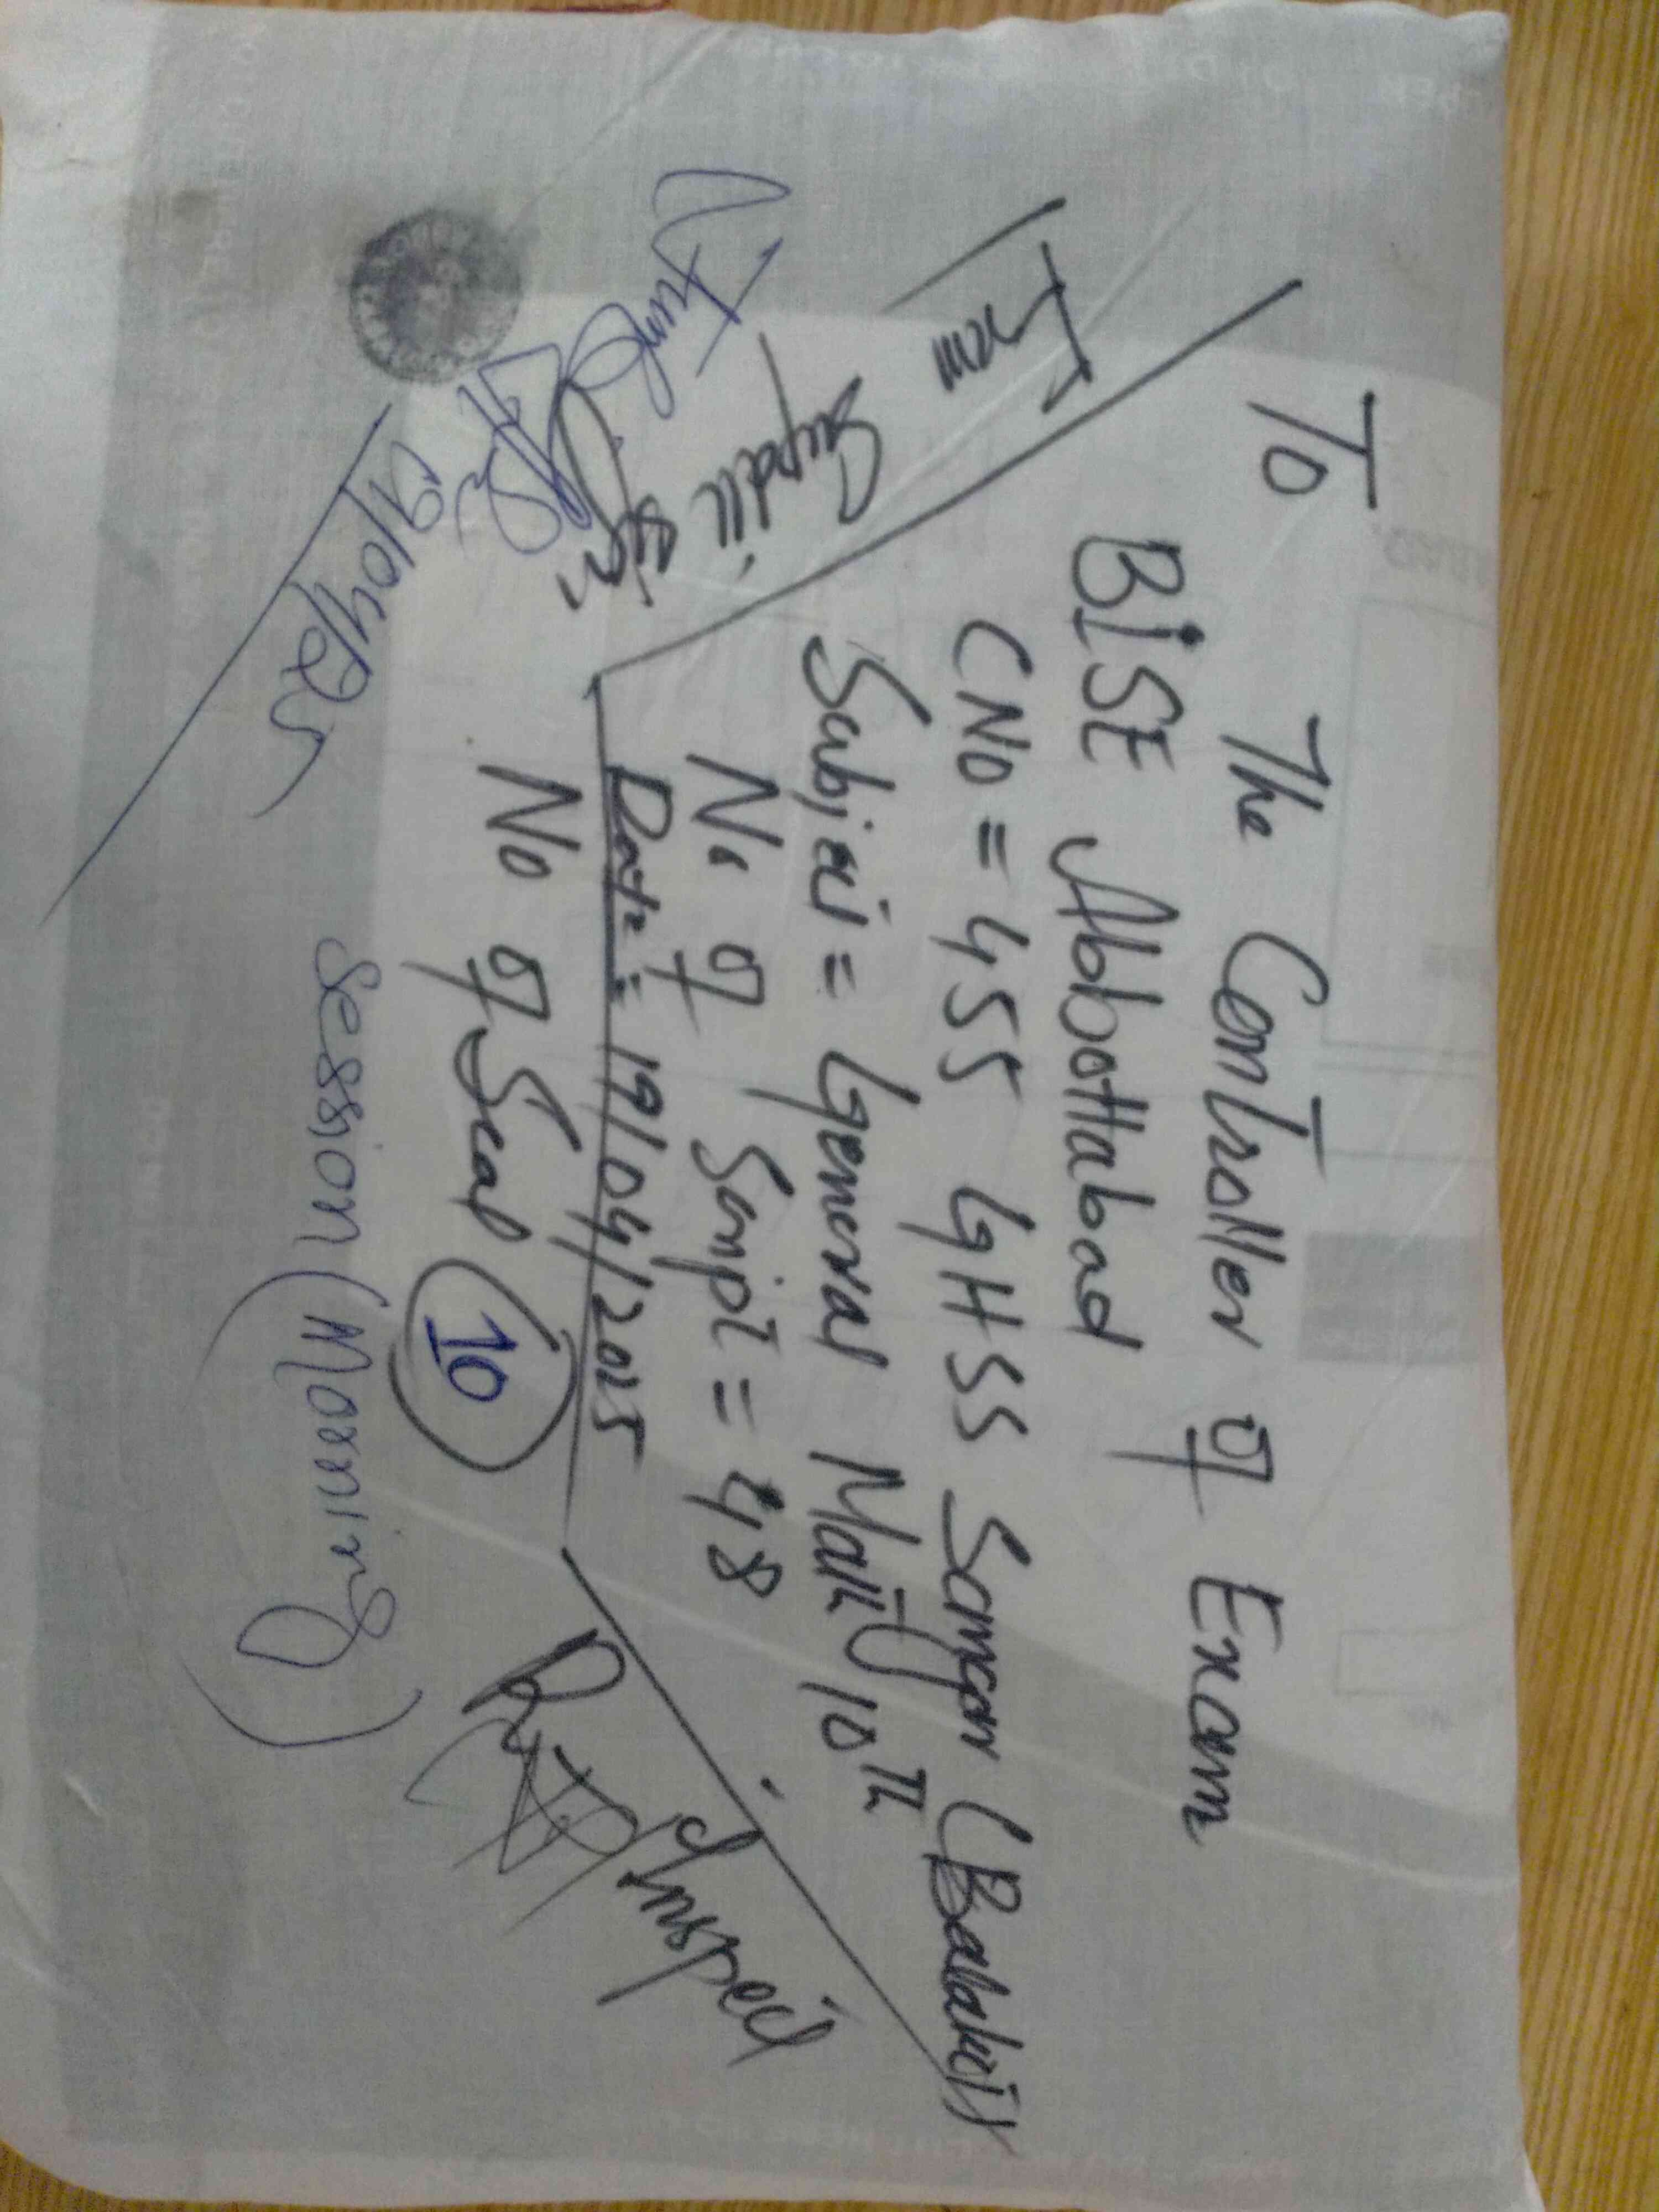 To
The Controller of Exam
BISE Abbottabad
CNo = 455 GHSS Sangar (Balakot)
Subject = General Math 10th
No of Script = 48
Date = 19/04/2025
No of Seal 10
Session (Morning)
From
Supdtt
19/04/25
Inspector